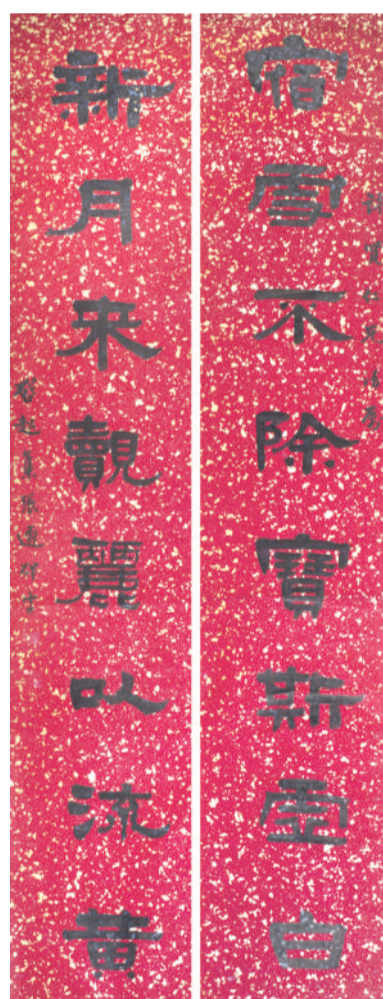 宿雪不除寶斯虛白
新月来覿麗以流黃